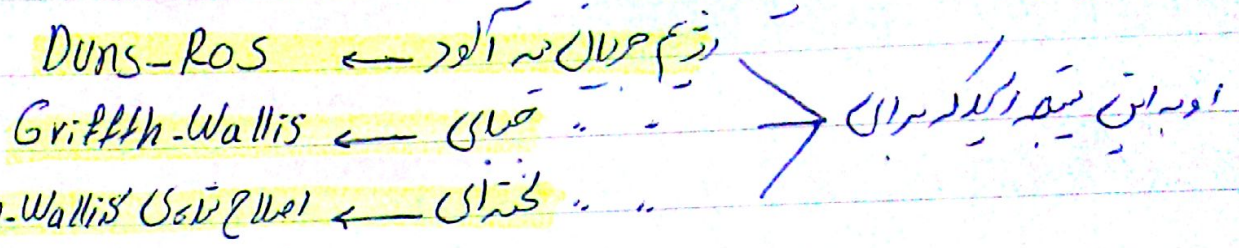 او به این نتیجه رسید که برای
رژیم جریانی مه آلود ← Duns-Ros
" " حبابی ← Griffth-Wallis
" " لخته‌ای ← اصلاح شده‌ی Wallis